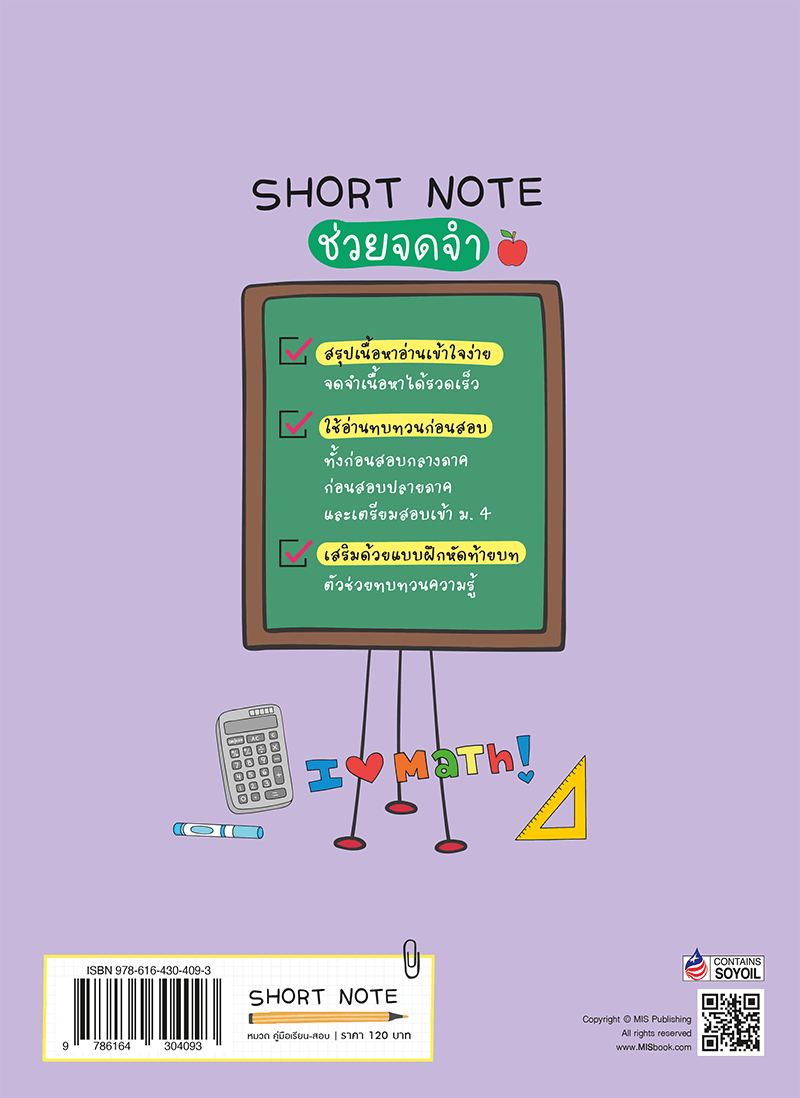 SHORT NOTE
ช่วยจดจำ
สรุปเนื้อหาอ่านเข้าใจง่าย
จดจำเนื้อหาได้รวดเร็ว
ใช้อ่านทบทวนก่อนสอบ
ทั้งก่อนสอบกลางภาค
ก่อนสอบปลายภาค
และเตรียมสอบเข้า ม. 4
เสริมด้วยแบบฝึกหัดท้ายบท
ตัวช่วยทบทวนความรู้
I ❤ MaTh!
ISBN 978-616-430-409-3
9 786164 304093
SHORT NOTE
หมวด คู่มือเรียน-สอบ | ราคา 120 บาท
CONTAINS
SOYOIL
Copyright © MIS Publishing
All rights reserved
www.MISbook.com